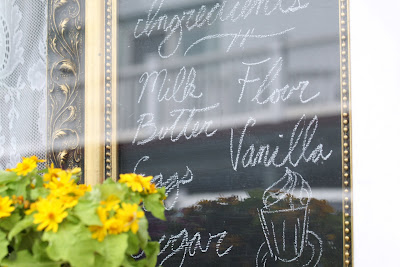 Ingredients
Milk Flour
Butter
Vanilla
Eggs
Sugar